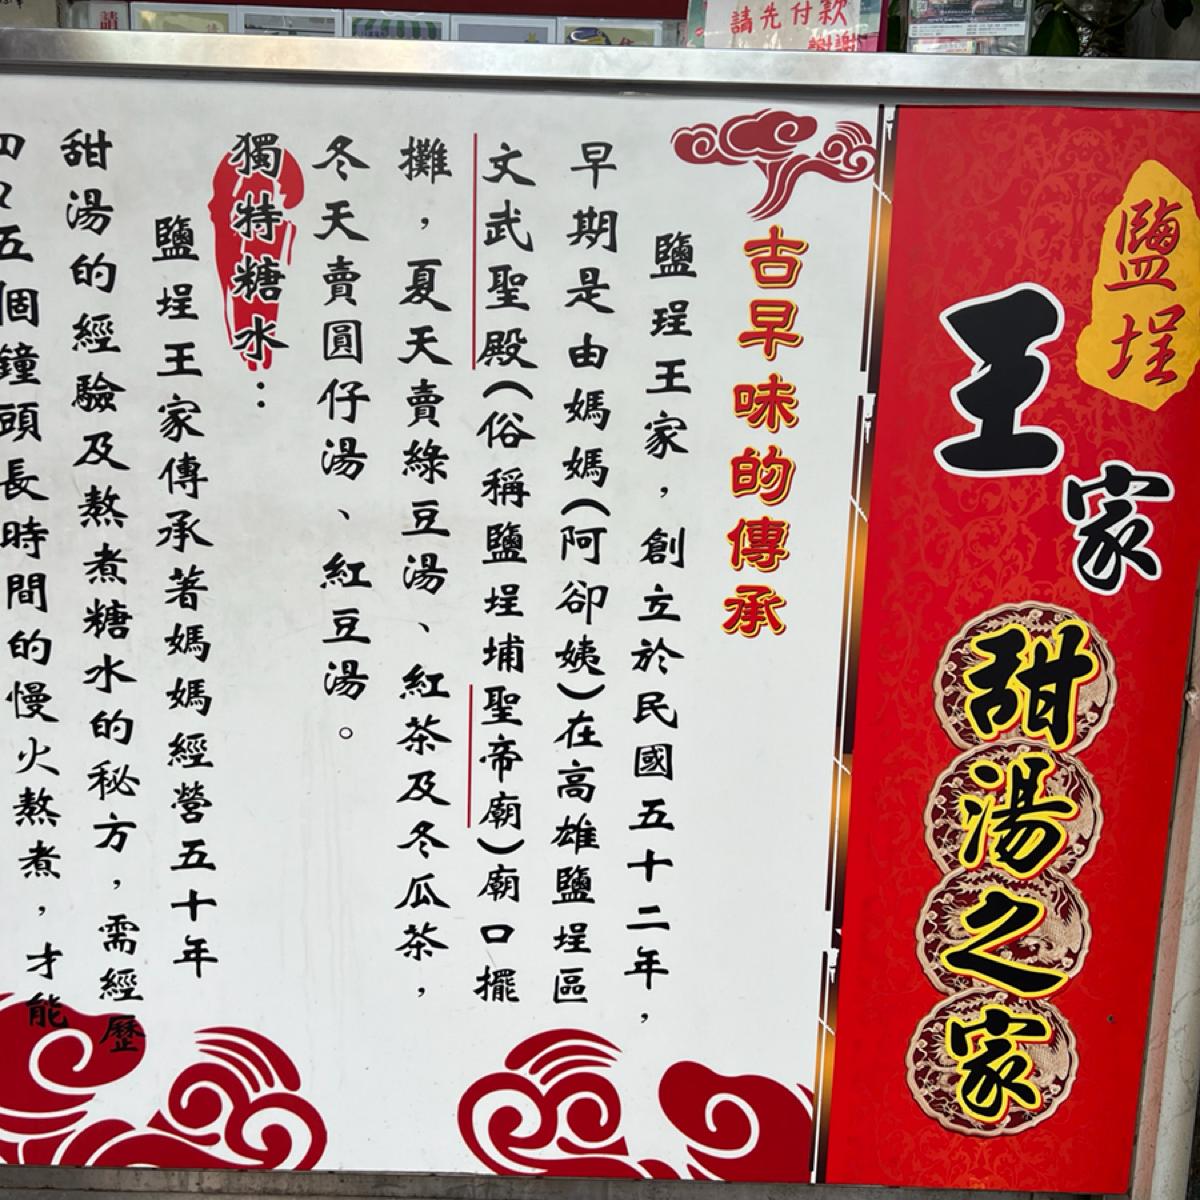 請先付款
謝謝
鹽埕
王家
甜湯之家
古早味的傳承
鹽埕王家，創立於民國五十二年，
早期是由媽媽(阿卻姨)在高雄鹽埕區
文武聖殿(俗稱鹽埕埔聖帝廟)廟口擺
攤，夏天賣綠豆湯、紅茶及冬瓜茶，
冬天賣圓仔湯、紅豆湯。
獨特糖水：
鹽埕王家傳承著媽媽經營五十年
甜湯的經驗及熬煮糖水的秘方，需經歷
四~五個鐘頭長時間的慢火熬煮，才能